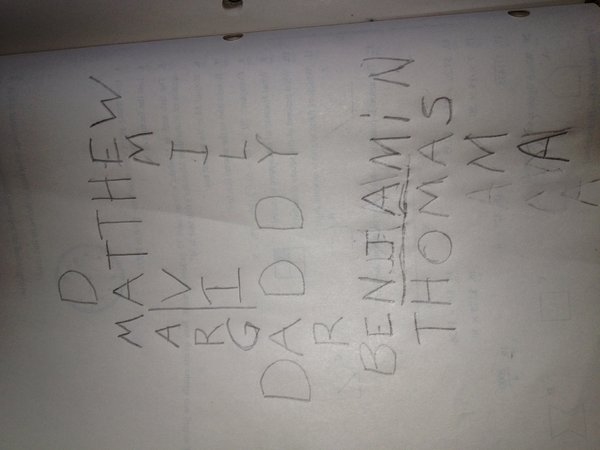 D
MATTHEW
A V M
R I I
G L
DADDY
R
BENJAMIN
THOMAS
AM
A